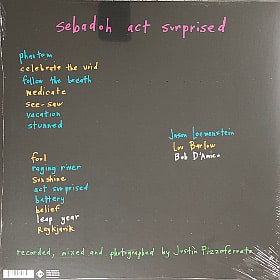 sebadoh act surprised
phantom
celebrate the void
follow the breath
medicate
see-saw
vacation
stunned
Jason Loewenstein
Lou Barlow
Bob D'Amico
fool
raging river
sunshine
act surprised
battery
belief
leap year
Reykjavik
recorded, mixed and photographed by Justin Pizzoferrato